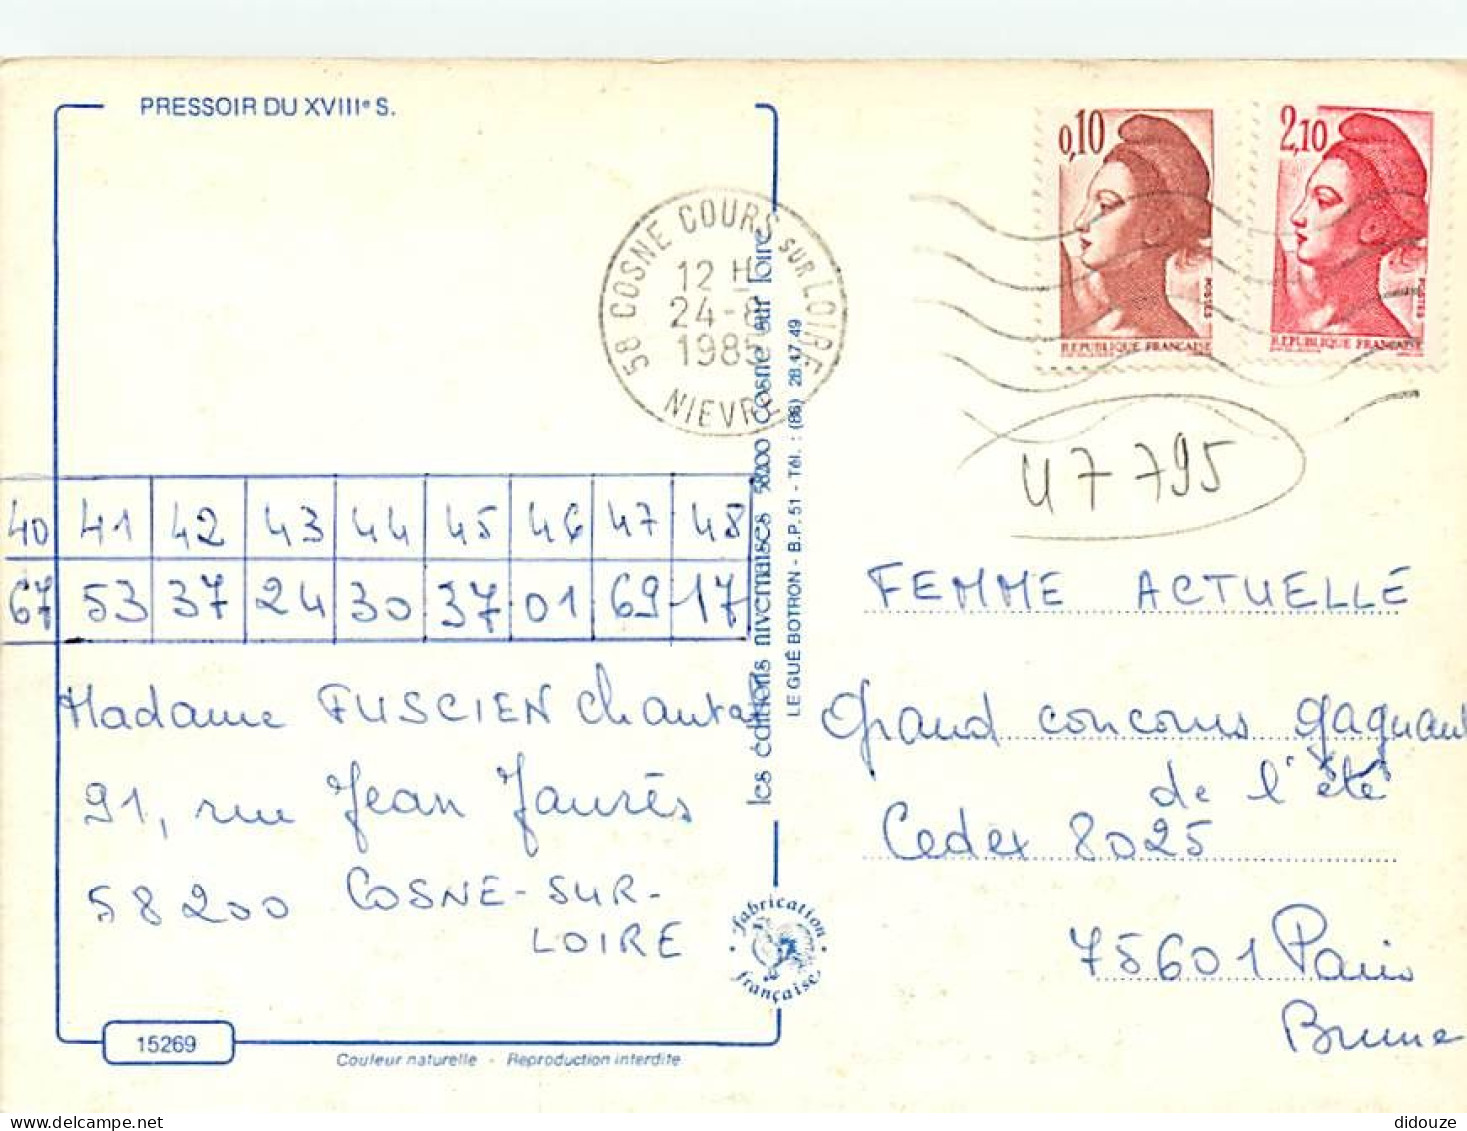 PRESSOIR DU XVIIIe S.
58 COSNE COURS SUR LOIRE
12 H
24-8
1985
NIEVRE
0,10
POSTES
REPUBLIQUE FRANÇAISE
2,10
POSTES
REPUBLIQUE FRANÇAISE
47 795
40 41 42 43 44 45 46 47 48
67 53 37 24 30 37 01 69 17
Madame FUSCIEN Chantal
91, rue Jean Jaurès
58200 COSNE-SUR-
LOIRE
les éditions nivernaises 58200 cosne sur loire
LE GUÉ BOTRON - B.P. 51 - Tél. : (86) 28.47.49
FEMME ACTUELLE
Grand concours gagnant
de l'été
Cedex 8025
75601 Paris
Brune
fabrication française
15269
Couleur naturelle - Reproduction interdite
didouze